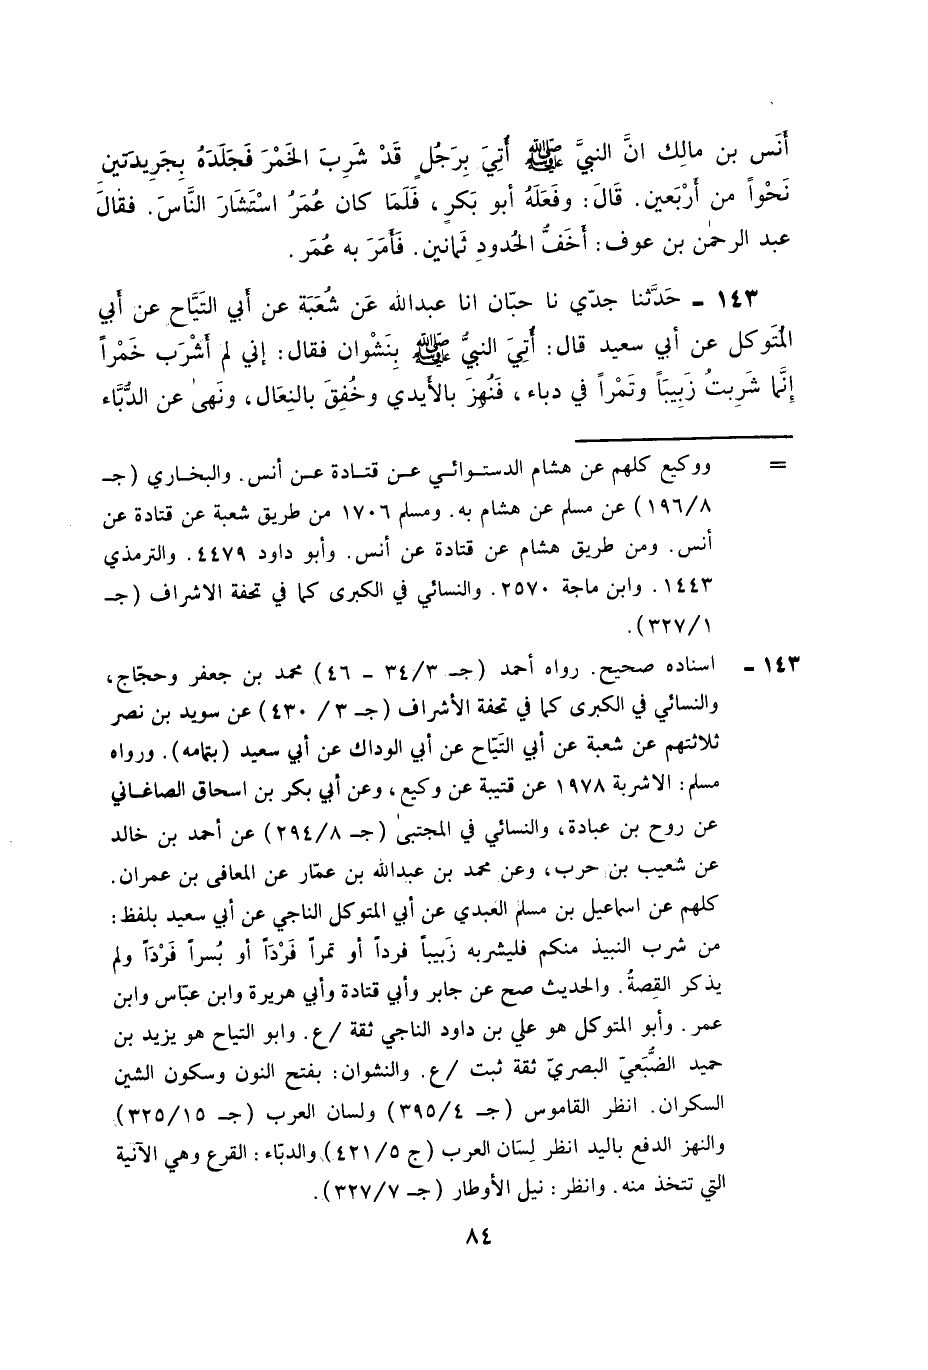 أَنَس بن مالِك انَّ النبيَّ ﷺ أُتِيَ بِرَجُلٍ قَدْ شَرِبَ الخَمْرَ فَجَلَدَهُ بِجَرِيدَتَين
نَحْواً من أَرْبَعين. قَالَ: وفَعَلَهُ أبو بَكرٍ، فَلَمَا كان عُمَرُ اسْتَشَارَ النَّاسَ. فقالَ
عبد الرحمٰن بن عوف: أَخَفُّ الحُدودِ ثَمانين. فَأَمَرَ به عُمَر.
١٤٣ ـ حَدَّثنا جدّي نا حبّان انا عبدالله عَن شُعَبَة عن أَبي التَيَّاح عن أَبي
المُتَوكل عن أبي سعيد قال: أُتِيَ النبيُّ ﷺ بِنَشْوان فقال: إني لم أَشْرَب خَمْراً
إِنَّما شَرِبتُ زَبِيبَاً وتَمْراً في دباء، فَنُهِزَ بالأَيدي وخُفِقَ بالنِعَال، ونَهىٰ عن الدُّبَّاء
= ووكيع كلهم عن هشام الدستوائي عن قتادة عن أنس. والبخاري (جـ
١٩٦/٨) عن مسلم عن هشام به. ومسلم ١٧٠٦ من طريق شعبة عن قتادة عن
أنس. ومن طريق هشام عن قتادة عن أنس. وأبو داود ٤٤٧٩. والترمذي
١٤٤٣. وابن ماجة ٢٥٧٠. والنسائي في الكبرى كما في تحفة الاشراف (جـ
٣٢٧/١).
١٤٣ ـ اسناده صحيح. رواه أحمد (جـ ٣٤/٣ ـ ٤٦) محمد بن جعفر وحجّاج،
والنسائي في الكبرى كما في تحفة الأشراف (جـ ٣/ ٤٣٠) عن سويد بن نصر
ثلاثتهم عن شعبة عن أبي التَيّاح عن أبي الوداك عن أبي سعيد (بتمامه). ورواه
مسلم: الاشربة ١٩٧٨ عن قتيبة عن وكيع، وعن أبي بكر بن اسحاق الصاغاني
عن روح بن عبادة، والنسائي في المجتبىٰ (جـ ٢٩٤/٨) عن أحمد بن خالد
عن شعيب بن حرب، وعن محمد بن عبدالله بن عمّار عن المعافى بن عمران.
كلهم عن اسماعيل بن مسلم العبدي عن أبي المتوكل الناجي عن أبي سعيد بلفظ:
من شرب النبيذ منكم فليشربه زَبيباً فرداً أو تمراً فَرْدَاً أو بُسراً فَرْدَاً ولم
يذكر القِصةُ. والحديث صح عن جابر وأبي قتادة وأبي هريرة وابن عبّاس وابن
عمر. وأبو المتوكل هو علي بن داود الناجي ثقة /ع. وابو التياح هو يزيد بن
حميد الضُّبَعيّ البصريّ ثقة ثبت /ع. والنشوان: بفتح النون وسكون الشين
السكران. انظر القاموس (جـ ٣٩٥/٤) ولسان العرب (جـ ٣٢٥/١٥)
والنهز الدفع باليد انظر لِسَان العرب (ج ٤٢١/٥) والدبّاء: القرع وهي الآنية
التي تتخذ منه. وانظر: نيل الأوطار (جـ ٣٢٧/٧).
٨٤